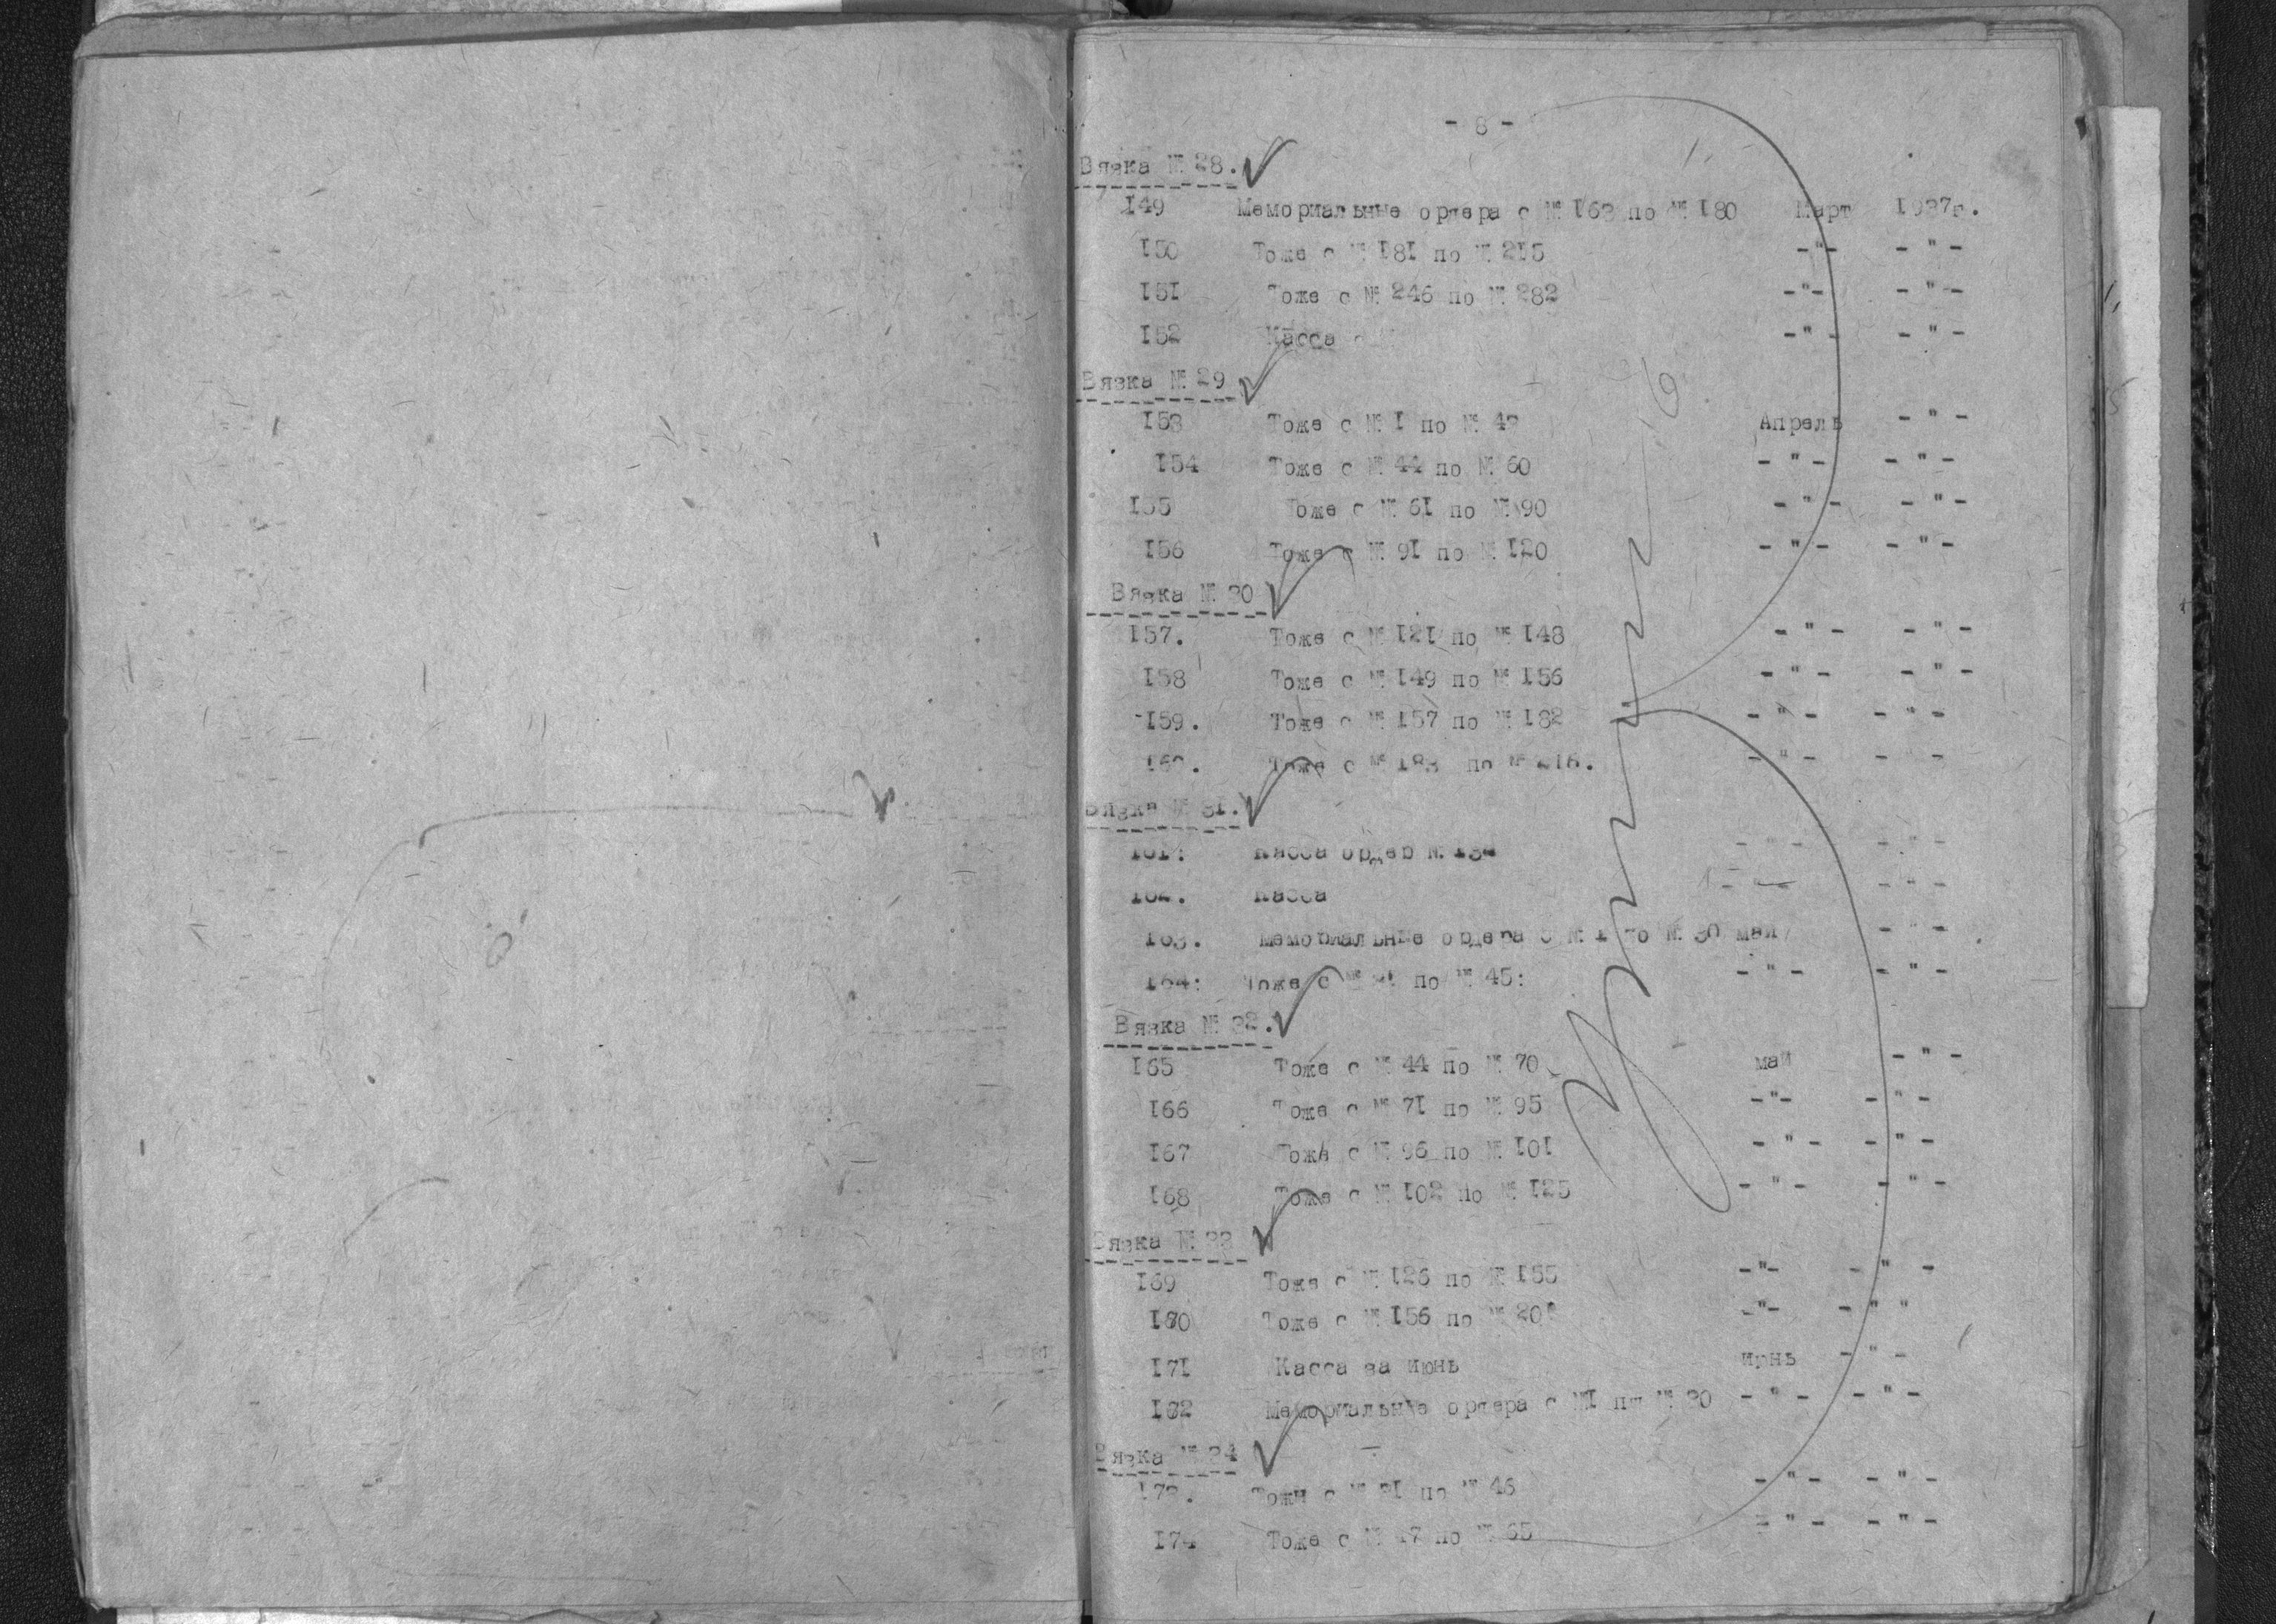 - 8 -
Вязка № 28.
149 Мемориальные ордера с № 163 по № 180 Март 1937г.
150 Тоже с № 181 по № 215 -"- - " -
151 Тоже с № 246 по № 282 -"- - " -
152 Касса с -"- - " -
Вязка № 29
153 Тоже с № 1 по № 43 Апрель - " -
154 Тоже с № 44 по № 60 - " - - " -
155 Тоже с № 61 по № 90 - " - - " -
156 Тоже с № 91 по № 120 - " - - " -
Вязка № 30
157. Тоже с № 121 по № 148 - " - - " -
158 Тоже с № 149 по № 156 - " - - " -
159. Тоже с № 157 по № 182 - " - - " -
160. Тоже с № 183 по № 216. - " - - " -
Вязка № 31.
161: Касса ордер № - " - - " -
162. Касса - " -
163. Мемориальные ордера с № 1 по № 30 май - " -
164: Тоже с № 31 по № 45: - " - - " -
Вязка № 32.
165 Тоже с № 44 по № 70 май - " -
166 Тоже с № 71 по № 95 -"- - " -
167 Тоже с № 96 по № 101 - " - - " -
168 Тоже с № 102 по № 125 - " - - " -
Вязка № 33
169 Тоже с № 126 по № 155 -"- - " -
170 Тоже с № 156 по № -"- - " "
171 Касса за июнь июнь - " -
172 Мемориальные ордера с №1 пш № 30 - " - - " -
Вязка № 34
173. Тожы с № 31 по № 46 - " - - " -
174 Тоже с № 47 по № 65 - " - - " -